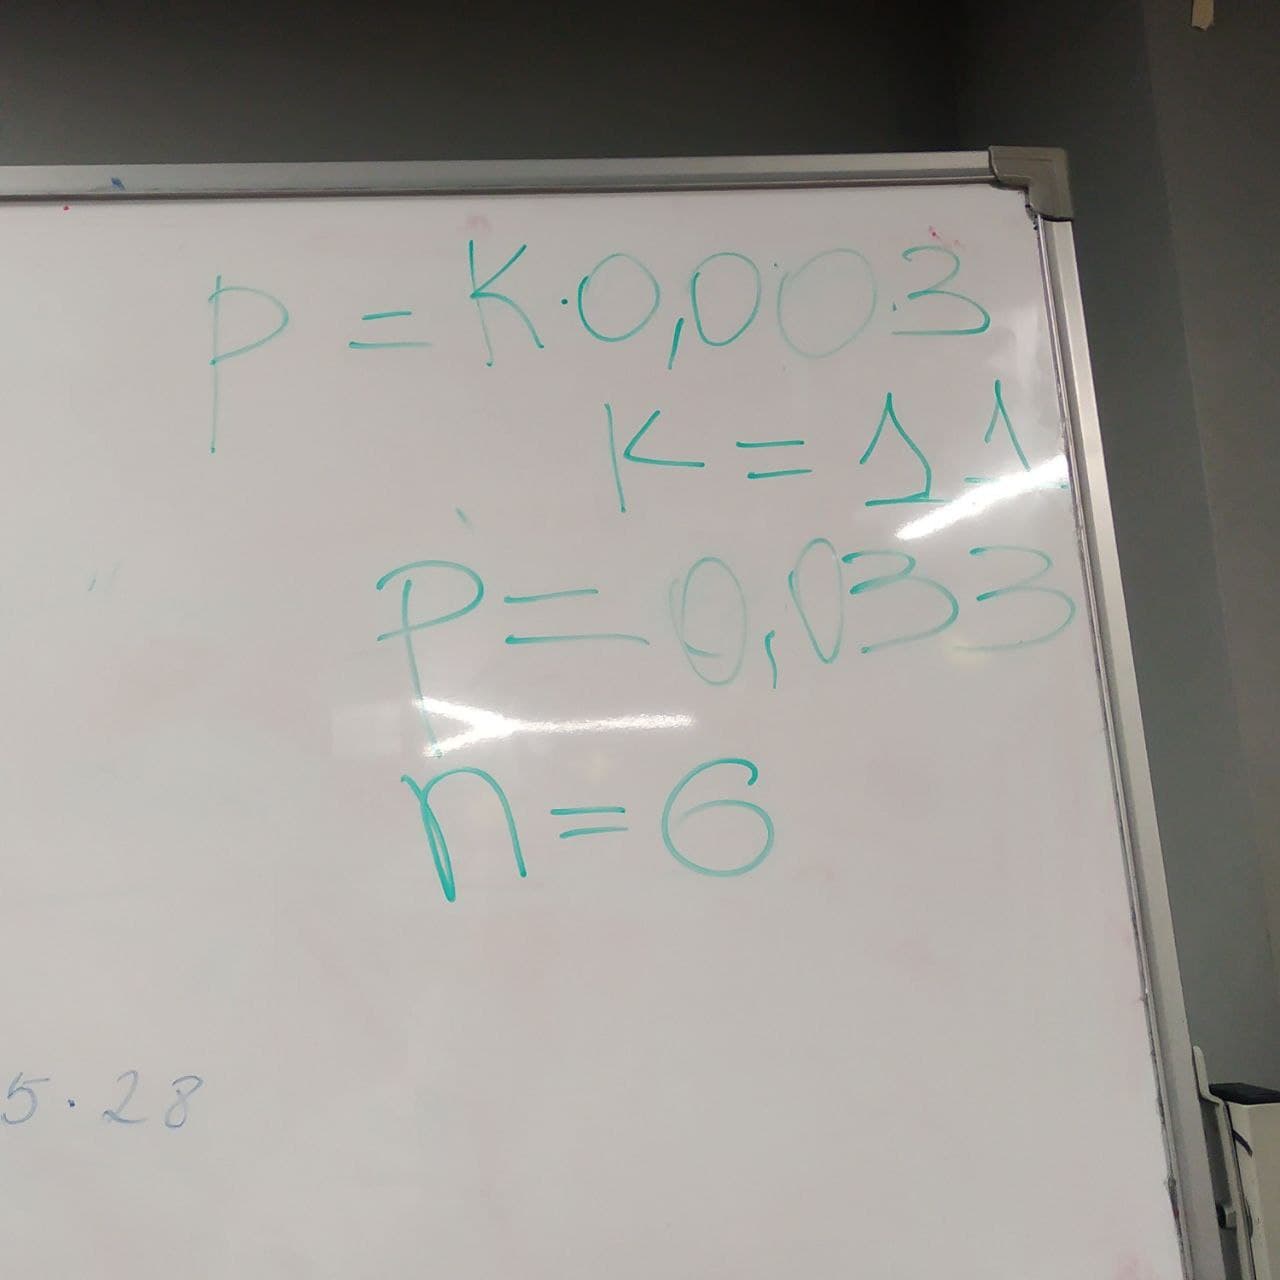 p = K·0,003
K = 11
p = 0,033
n = 6
5·28